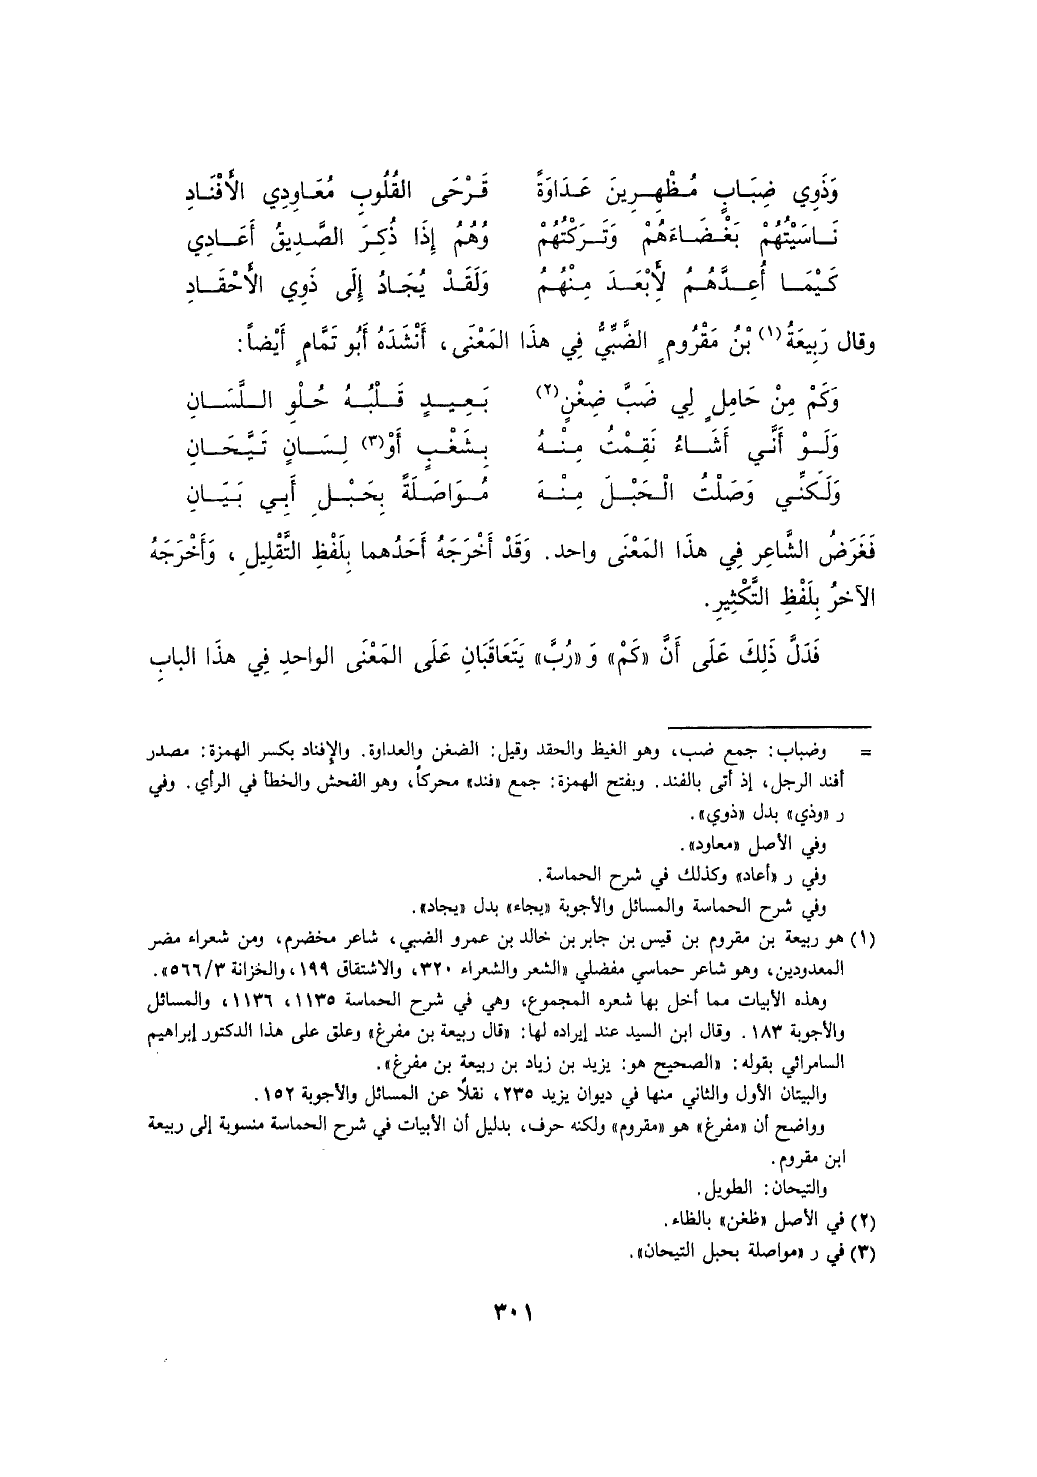 وَذَوِي ضِبَابٍ مُظْهِرِينَ عَدَاوَةً قَرْحَى القُلُوبِ مُعَاوِدِي الأَفْنَادِ
نَاسَيْتُهُمْ بَغْضَاءَهُمْ وَتَرَكْتُهُمْ وَهُمُ إِذَا ذُكِرَ الصَّدِيقُ أَعَادِي
كَيْمَا أُعِدَّهُمُ لِأَبْعَدَ مِنْهُمُ وَلَقَدْ يُجَادُ إِلَى ذَوِي الأَحْقَادِ
وقال رَبِيعَةُ (١) بْنُ مَقْرُومٍ الضَّبِّيُّ فِي هذَا المَعْنَى، أَنْشَدَهُ أَبُو تَمَّامٍ أَيْضاً:
وَكَمْ مِنْ حَامِلٍ لِي ضَبَّ ضِغْنٍ (٢) بَعِيدٍ قَلْبُهُ حُلْوِ اللِّسَانِ
وَلَوْ أَنِّي أَشَاءُ نَقِمْتُ مِنْهُ بِشَغْبٍ أَوْ (٣) لِسَانٍ تَيَّحَانِ
وَلَكِنِّي وَصَلْتُ الْحَبْلَ مِنْهُ مُوَاصَلَةً بِحَبْلِ أَبِي بَيَانِ
فَغَرَضُ الشَّاعِرِ فِي هذَا المَعْنَى واحد. وَقَدْ أَخْرَجَهُ أَحَدُهما بِلَفْظِ التَّقْلِيلِ، وَأَخْرَجَهُ
الآخرُ بِلَفْظِ التَّكْثِيرِ.
فَدَلَّ ذَلِكَ عَلَى أَنَّ «كَمْ» وَ«رُبَّ» يَتَعَاقَبَانِ عَلَى المَعْنَى الواحدِ فِي هذَا البابِ
= وضباب: جمع ضب، وهو الغيظ والحقد وقيل: الضغن والعداوة. والإفناد بكسر الهمزة: مصدر
أفند الرجل، إذ أتى بالفند. وبفتح الهمزة: جمع «فند» محركاً، وهو الفحش والخطأ في الرأي. وفي
ر «وذي» بدل «ذوي».
وفي الأصل «معاود».
وفي ر «أعاد» وكذلك في شرح الحماسة.
وفي شرح الحماسة والمسائل والأجوبة «يجاء» بدل «يجاد».
(١) هو ربيعة بن مقروم بن قيس بن جابر بن خالد بن عمرو الضبي، شاعر مخضرم، ومن شعراء مضر
المعدودين، وهو شاعر حماسي مفضلي «الشعر والشعراء ٣٢٠، والاشتقاق ١٩٩، والخزانة ٥٦٦/٣».
وهذه الأبيات مما أخل بها شعره المجموع، وهي في شرح الحماسة ١١٣٥، ١١٣٦، والمسائل
والأجوبة ١٨٣. وقال ابن السيد عند إيراده لها: «قال ربيعة بن مفرغ» وعلق على هذا الدكتور إبراهيم
السامرائي بقوله: «الصحيح هو: يزيد بن زياد بن ربيعة بن مفرغ».
والبيتان الأول والثاني منها في ديوان يزيد ٢٣٥، نقلاً عن المسائل والأجوبة ١٥٢.
وواضح أن «مفرغ» هو «مقروم» ولكنه حرف، بدليل أن الأبيات في شرح الحماسة منسوبة إلى ربيعة
ابن مقروم.
والتيحان: الطويل.
(٢) في الأصل «ظغن» بالظاء.
(٣) في ر «مواصلة بحبل التيحان».
٣٠١